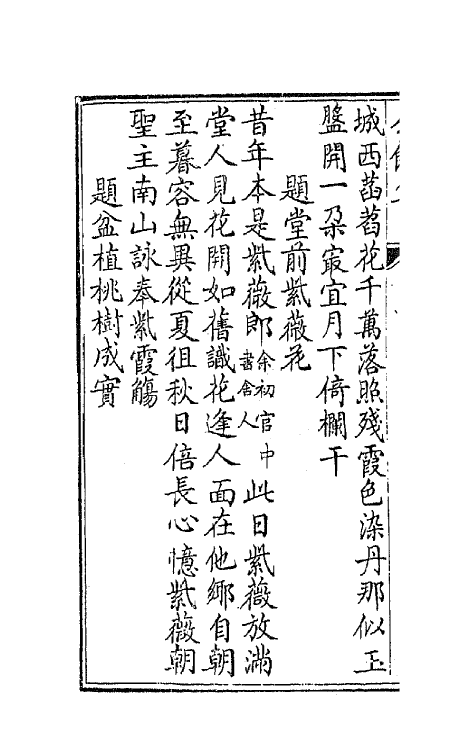 城西菡萏花千萬落照殘霞色染丹那似玉
盤開一朶㝡宜月下倚欄干
題堂前紫薇花
昔年本是紫薇郎余初官中書舍人此日紫薇放滿
堂人見花開如舊識花逢人面在他鄉自朝
至暮容無異從夏徂秋日倍長心憶紫薇朝
聖主南山詠奉紫霞觴
題盆植桃樹成實